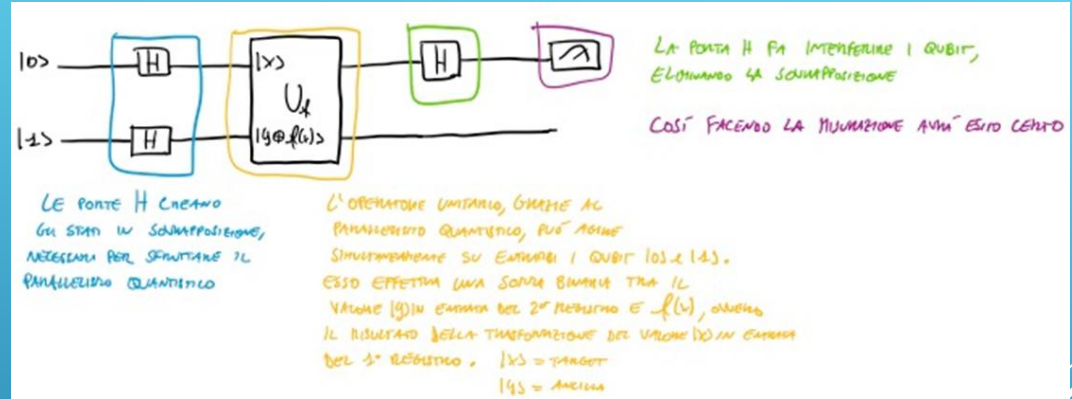 |0> H |x> H
Uf
|1> H |y⊕f(x)>
LA PORTA H FA INTERFERIRE I QUBIT,
ELIMINANDO LA SOVRAPPOSIZIONE
COSÍ FACENDO LA MISURAZIONE AVRÁ ESITO CERTO
LE PORTE H CREANO
GLI STATI IN SOVRAPPOSIZIONE,
NECESSARI PER SFRUTTARE IL
PARALLELISMO QUANTISTICO
L'OPERATORE UNITARIO, GRAZIE AL
PARALLELISMO QUANTISTICO, PUÓ AGIRE
SIMULTANEAMENTE SU ENTRAMBI I QUBIT |0> e |1>.
ESSO EFFETTUA UNA SOMMA BINARIA TRA IL
VALORE |y> IN ENTRATA DEL 2° REGISTRO E f(x), OVVERO
IL RISULTATO DELLA TRASFORMAZIONE DEL VALORE |x> IN ENTRATA
DEL 1° REGISTRO. |x> = TARGET
|y> = ANCILLA